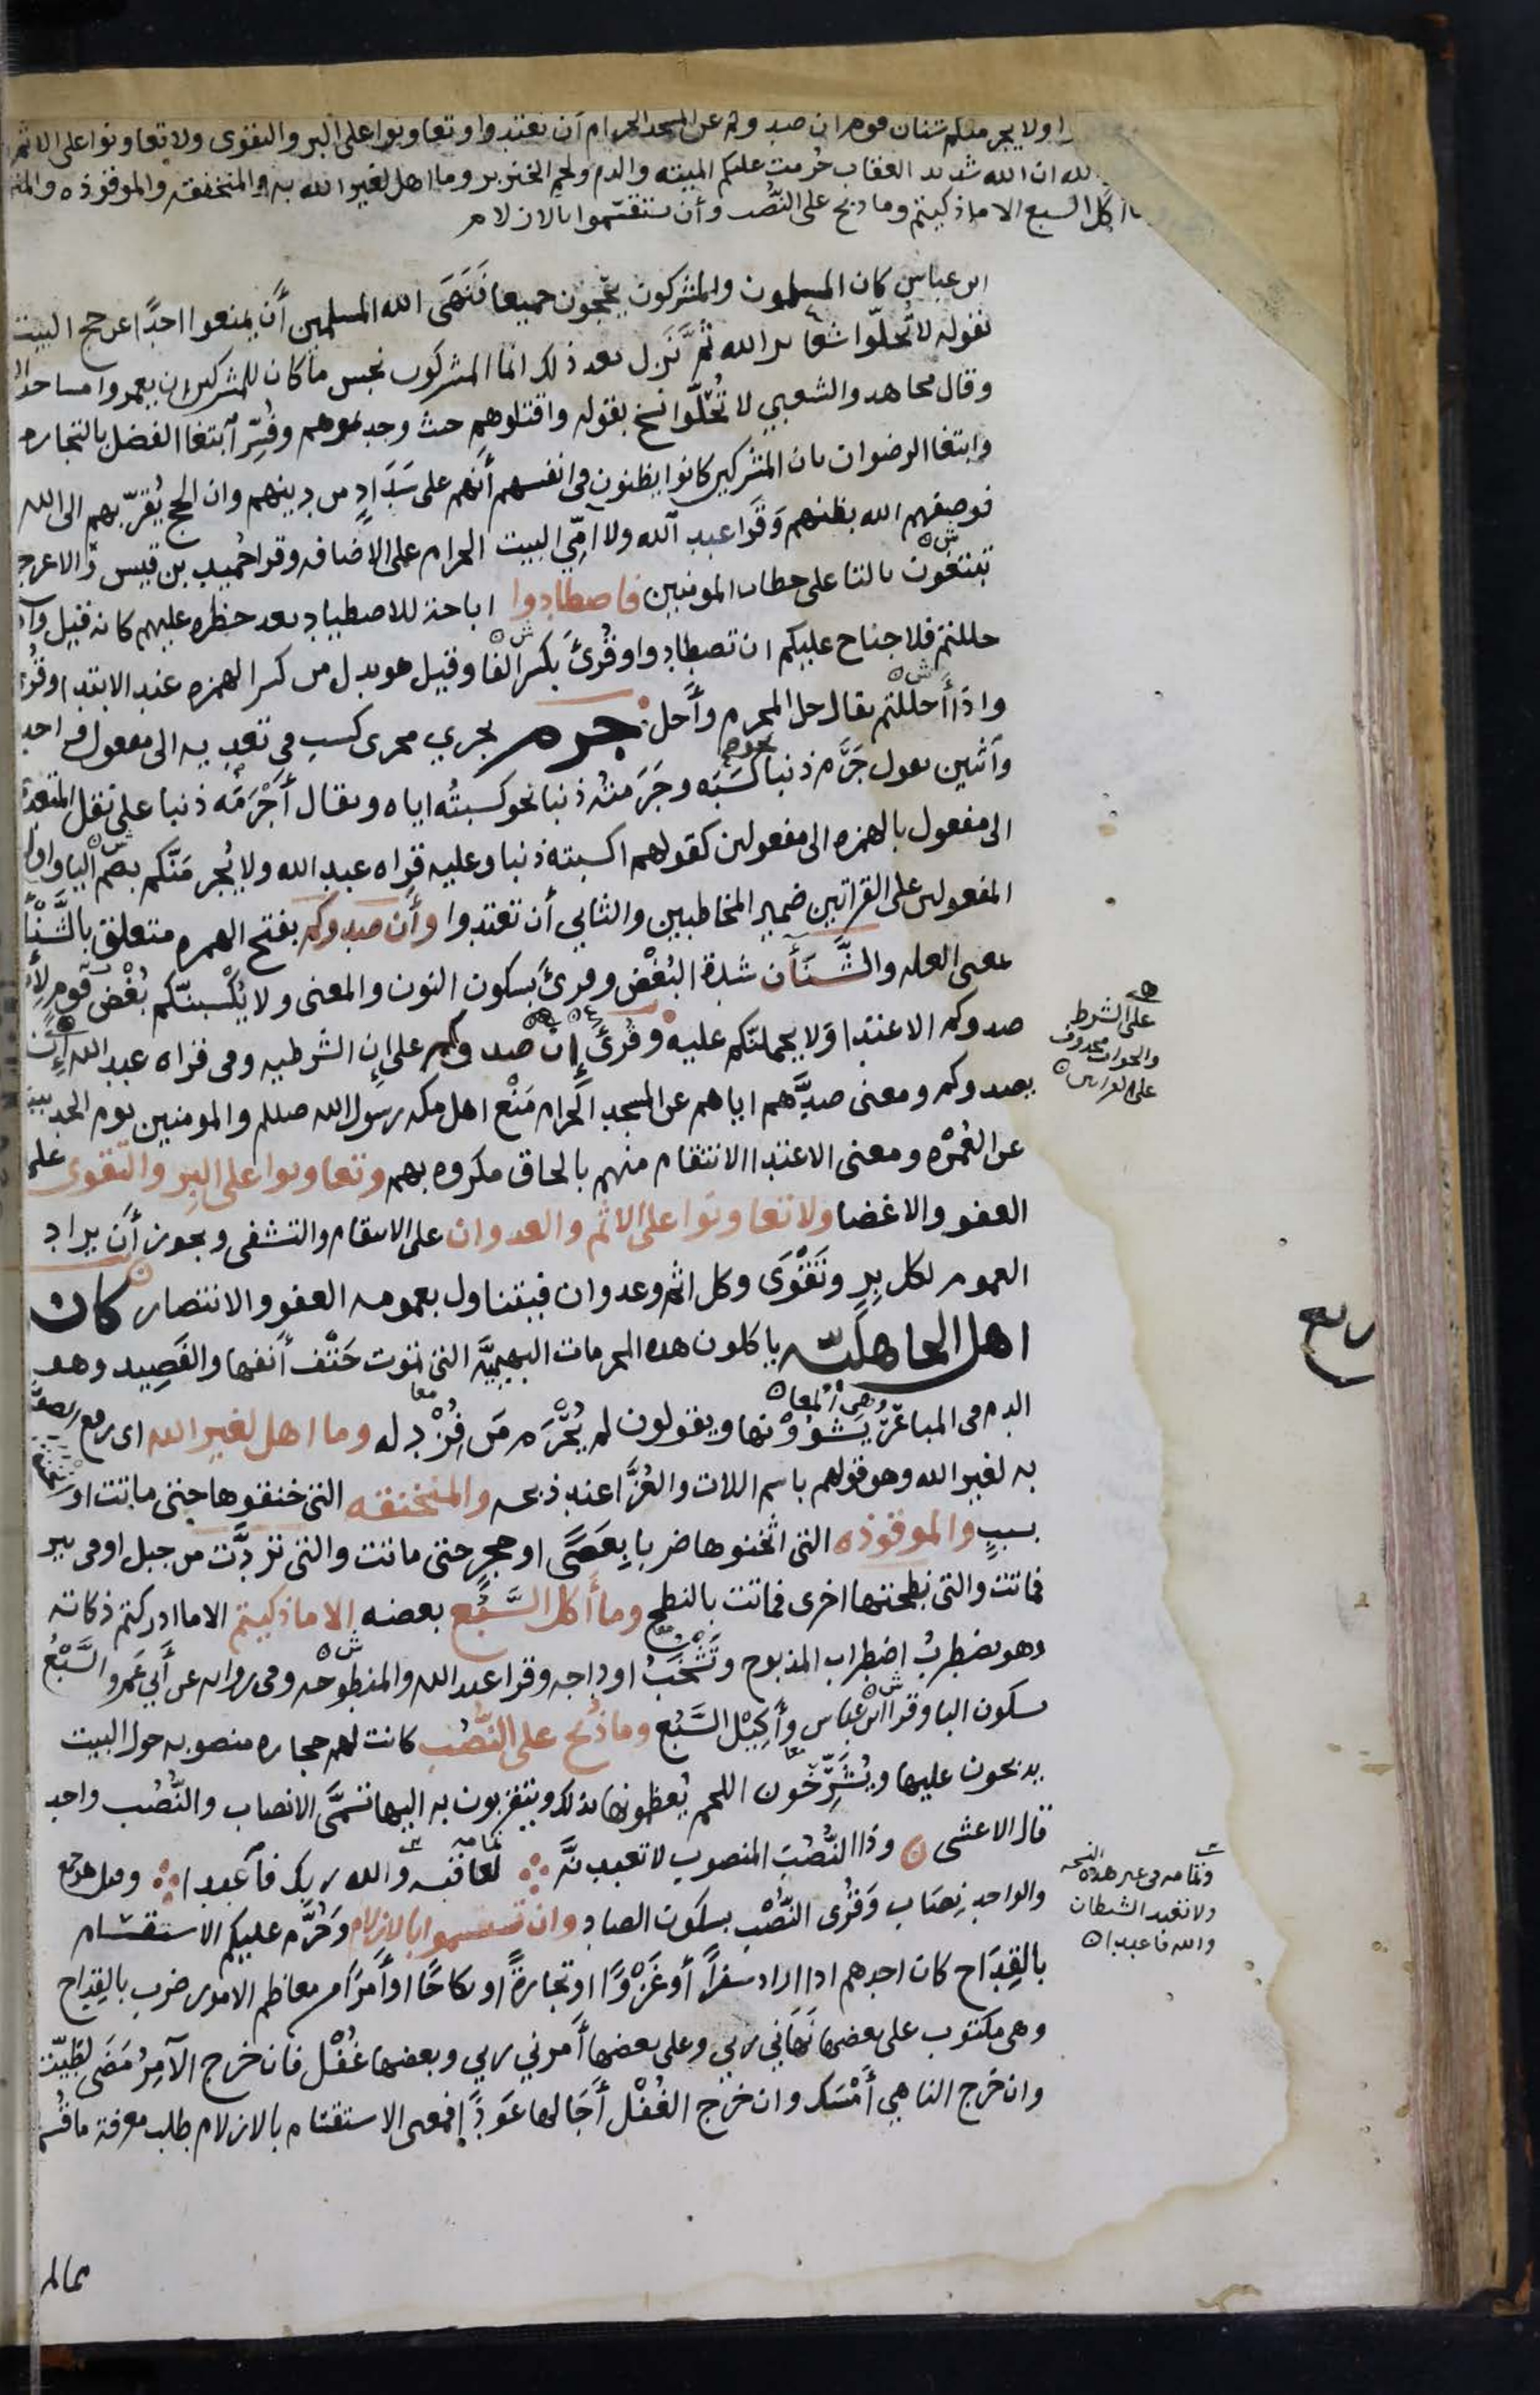 ولا يجرمنكم شنان قوم ان صدوكم عن المسجد الحرام أن تعتدوا وتعاونوا على البر والتقوى ولا تعاونوا على الاثم
الله ان الله شديد العقاب حُرمت عليكم الميته والدم ولحم الخنزير وما اهل لغير الله به والمنخنقه والموقوذه
اكل السبع الا ما ذكيتم وما ذبح على النُّصُب وأن تستقسموا بالازلام
ابن عباس كان المسلمون والمشركون يحجّون جميعا فَنَهَى الله المسلمين أن يمنعوا احدًا عن حج البيت
بقوله لا تُحلّوا شعاير الله ثمَّ نَزل بعد ذلك انما المشركون نجس ما كان للمشركين ان يعمروا مساجد
وقال مجاهد والشعبي لا تُحلّوا نسخ بقوله واقتلوهم حيث وجدتموهم وفُسِّر ابتغا الفضل بالتجاره
وابتغا الرضوان بان المشركين كانوا يظنون في انفسهم أنهم على سَدَادٍ من دينهم وان الحج يُقرّبهم الى الله
فوصفهم الله بظنهم وَقَرا عبد الله ولا امِّي البيت الحرام على الاضافه وقرا حُميد بن قيس والاعرج
تبتغون بالتا على خطاب المومنين فاصطادوا اباحة للاصطياد بعد حظره عليهم كانه قيل وا
حللتم فلا جناح عليكم ان تصطادوا وقُرئَ بكسر الفا وقيل هو بدل من كسر الهمزه عند الابتدا وقُر
واذا أَحللتم يقال حل المحرم وأَحل جرم يجري مجرى كسب في تعديه الى مفعول واحد
وآثنين يقول جَرَم ذنبا نحو كسَبَه وجَرَمتُه ذنبا نحو كسبتُه اياه ويقال أَجْرَمتَه ذنبا على نقل المتعدي
الى مفعول بالهمزه الى مفعولين كقولهم اكسبته ذنبا وعليه قراه عبد الله ولا يُجرِمَنَّكم بضم اليا واول
المفعولين على القراتين ضمير المخاطبين والثاني أن تعتدوا وأَن صدوكم بفتح الهمزه متعلق بالشَّنأ
بمعنى العله والشَّنأن شدة البُغْض وقرئ بسكون النون والمعنى ولا يَكْسبنّكم بُغْض قوم لأن
صدوكم الاعتدا وَلا يحملنّكم عليه وقُرئَ إن صدوكم على إن الشرطيه وفي قراه عبد الله إن
يصدوكم ومعنى صدِّهم اياهم عن المسجد الحرام مَنْع اهل مكه رسول الله صللم والمومنين يوم الحديبية
عن العُمْرَه ومعنى الاعتدا الانتقام منهم بالحاق مكروه بهم وتعاونوا على البِر والتقوى على
العفو والاغضا ولا تعاونوا على الاثم والعدوان على الانتقام والتشفى ويجوز أن يراد
العموم لكل بِر وتَقْوَى وكل اثم وعدوان فيتناول بعمومه العفو والانتصار كان
اهل الجاهليّه ياكلون هذه المحرمات البهيميَّه التي تموت حَتْف أَنفها والفَصِيد وهو
الدم في المباعر يشوُونها ويقولون لم يُحْرَم مَن فُزْد له وما اهل لغير الله اى رفع الصوت
به لغير الله وهو قولهم باسم اللات والعُزَّا عند ذبحه والمنخنقه التي خنقوها حتى ماتت او
بسببٍ والموقوذه التي اثخنوها ضربا بِعَصًى او حجرٍ حتى ماتت والتي تردَّت من جبل او في بير
فماتت والتي نطحتها اخرى فماتت بالنطح وما أَكل السَّبُع بعضه الا ما ذكيتم الا ما ادركتم ذكاته
وهو يضطربُ اضطراب المذبوح وتَشْخَبُ اوداجه وقرا عبد الله والمنطوحه وفي روايه عن أَبي عَمرو السَّبْعُ
بسكون البا وقرا ابن عباس وأَكِيْل السَّبُع وما ذُبح على النُّصُب كانت لهم حجاره منصوبه حول البيت
يذبحون عليها ويُشَرِّحُون اللحم يُعظمونها بذلك ويتقربون به اليها تسمَّى الانصاب والنُّصُب واحد
قال الاعشى وذا النُّصُبَ المنصوب لا تعبدنَّه لعاقبه والله ربك فآعبدا وقيل هو جمع
والواحد نِصَاب وَقُرى النُّصْب بسكون الصاد وان تستقسموا بالازلام وَحُرِّم عليكم الاستقسام
بالقِدَاح كان احدهم اذا اراد سفراً أو غَزْوًا او تجارةً او نكاحًا او أَمرًا من معاظم الامور ضرب بالقِداح
وهى مكتوب على بعضها نَهَاني ربي وعلى بعضها أَمرني ربي وبعضها غُفْل فان خرج الآمِرُ مَضَى لِطِيّته
وان خَرج الناهي أَمْسَك وان خرج الغُفْل أَجَالها عَوَدًا فمعنى الاستقسام بالازلام طلب معرفة ما قُسم
على الشرط
والجواب محذوف
على القراتين
ربع
وتمامه في غير هذه النسخه
ولا تعبد الشيطان
والله فاعبدا
مماله